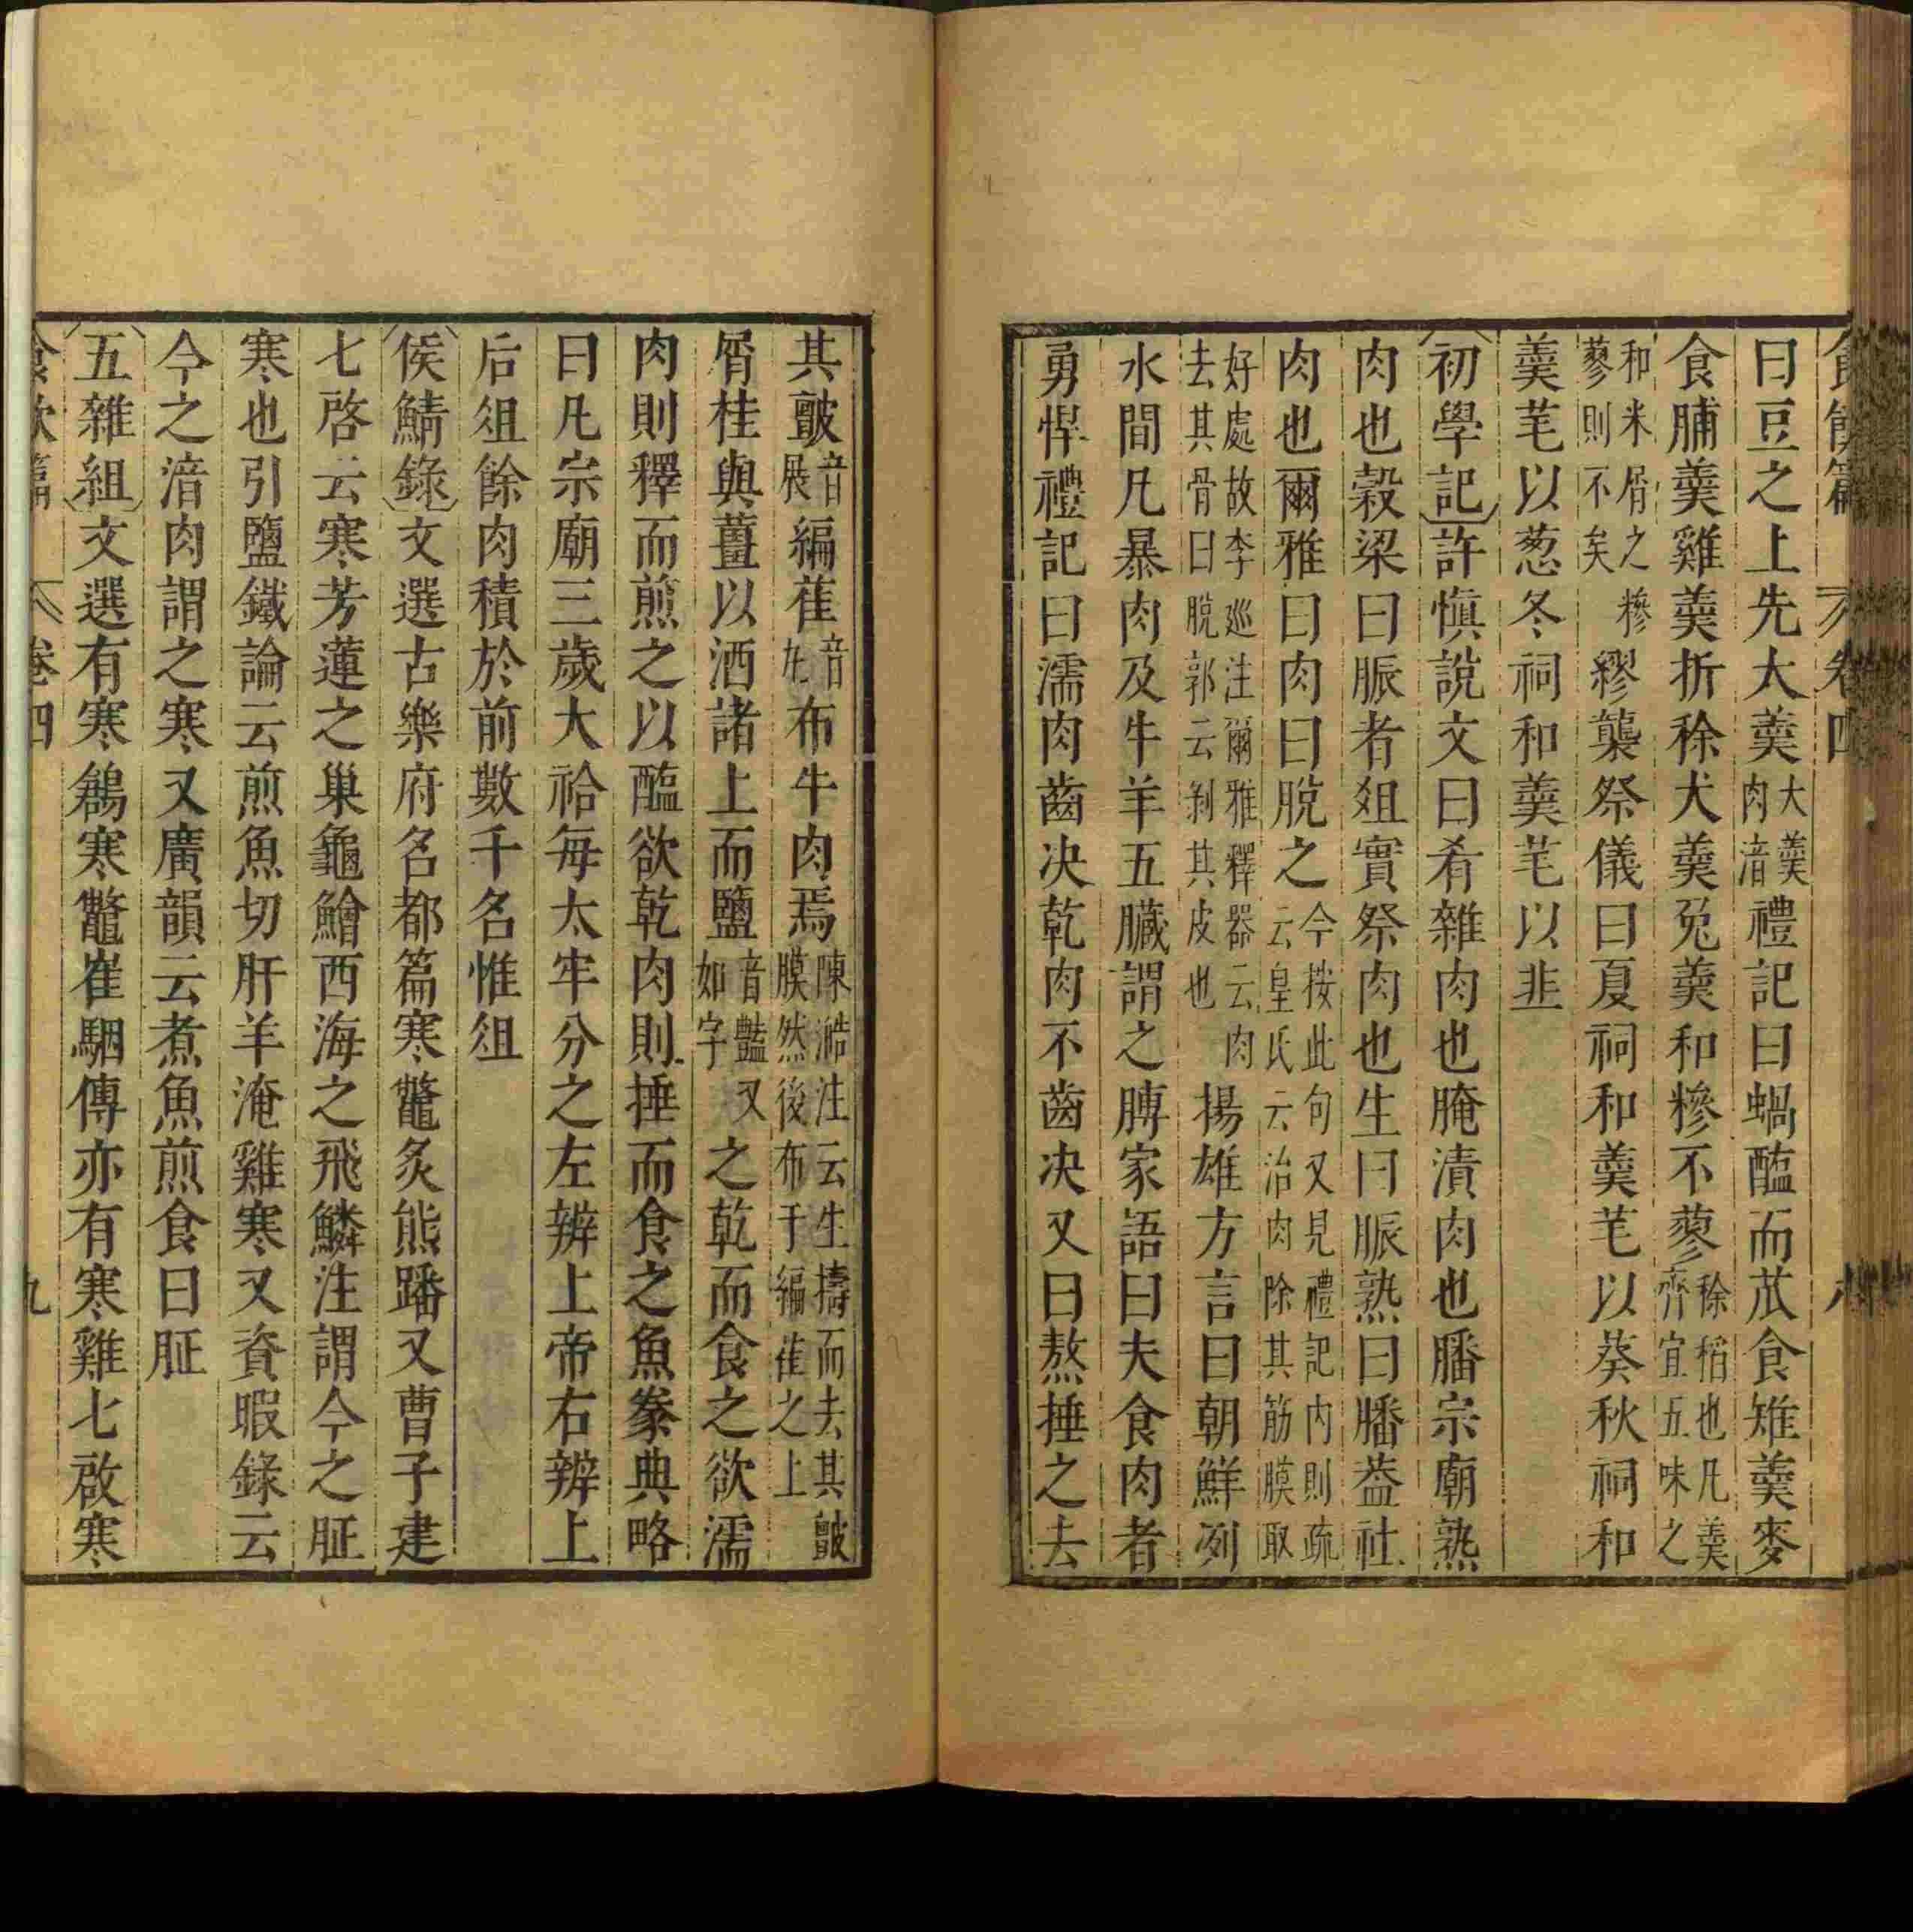 食饌篇 卷四 八
曰豆之上先大羹大羹肉湆禮記曰蝸醢而苽食雉羹麥
食脯羹雞羹折稌犬羹兔羹和糝不蓼稌稻也凡羹齊宜五味之
和米屑之糝蓼則不矣繆襲祭儀曰夏祠和羹芼以葵秋祠和
羹芼以葱冬祠和羹芼以韭
初學記許慎說文曰肴雜肉也腌漬肉也膰宗廟熟
肉也穀梁曰脤者俎實祭肉也生曰脤熟曰膰葢社
肉也爾雅曰肉曰脫之今按此句又見禮記內則疏云皇氏云治肉除其筋膜取
好處故李巡注爾雅釋器云肉去其骨曰脫郭云剥其皮也揚雄方言曰朝鮮冽
水間凡暴肉及牛羊五臟謂之膊家語曰夫食肉者
勇悍禮記曰濡肉齒決乾肉不齒決又曰熬捶之去
其皽音展編萑音九布牛肉焉陳澔注云生擣而去其皽膜然後布于編萑之上
屑桂與薑以洒諸上而鹽音豔又如字之乾而食之欲濡
肉則釋而煎之以醢欲乾肉則捶而食之魚豢典略
曰凡宗廟三歲大祫每太牢分之左辨上帝右辨上
后俎餘肉積於前數千名惟俎
侯鯖錄文選古樂府名都篇寒鼈炙熊蹯又曹子建
七啓云寒芳蓮之巢龜鱠西海之飛鱗注謂今之䏣
寒也引鹽鐵論云煎魚切肝羊淹雞寒又資暇錄云
今之湆肉謂之寒又廣韻云煮魚煎食曰䏣
五雜組文選有寒鶬寒鼈崔駰傳亦有寒雞七啟寒
食飲篇 卷四 九